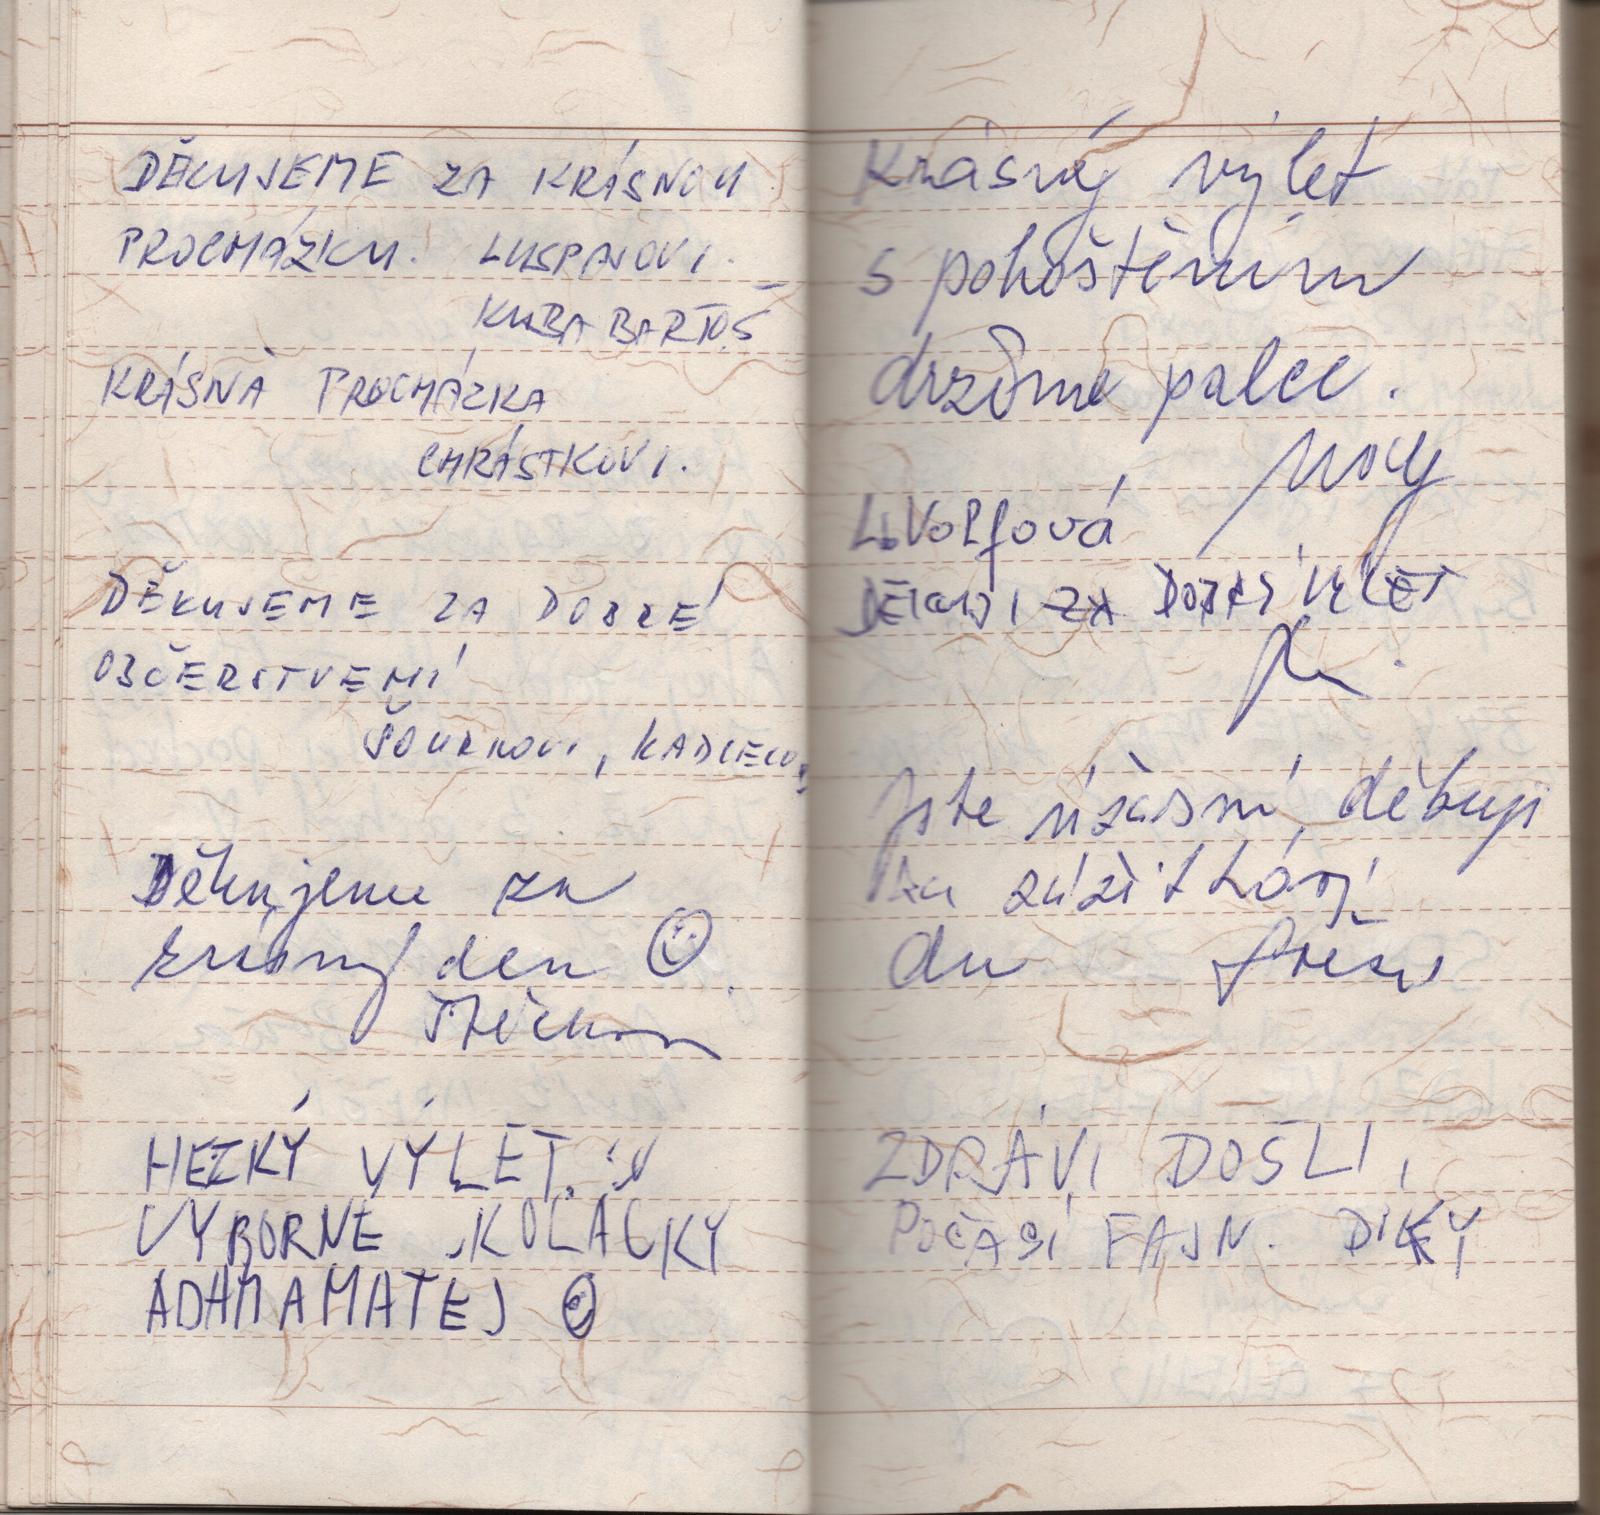 DĚKUJEME ZA KRÁSNOU
PROCHÁZKU. LUSPAJOVI.
KUBA BARTOŠ
KRÁSNÁ PROCHÁZKA
CHRÁSTKOVI.
DĚKUJEME ZA DOBRÉ
OBČERSTVENÍ
ŠOURKOVI, KADLECOVI
Děkujeme za
krásný den ☺
HEZKÝ VÝLET.
VÝBORNÉ KOLÁČKY
ADAM A MATĚJ ☺
Krásný výlet
s pohoštěním
držíme palce.
L. Volfová
DĚKUJI ZA DOBRÝ VÝLET
Jste úžasní, děkuji
za zážitkový
den
ZDRÁVI DOŠLI,
POČASÍ FAJN. DÍKY